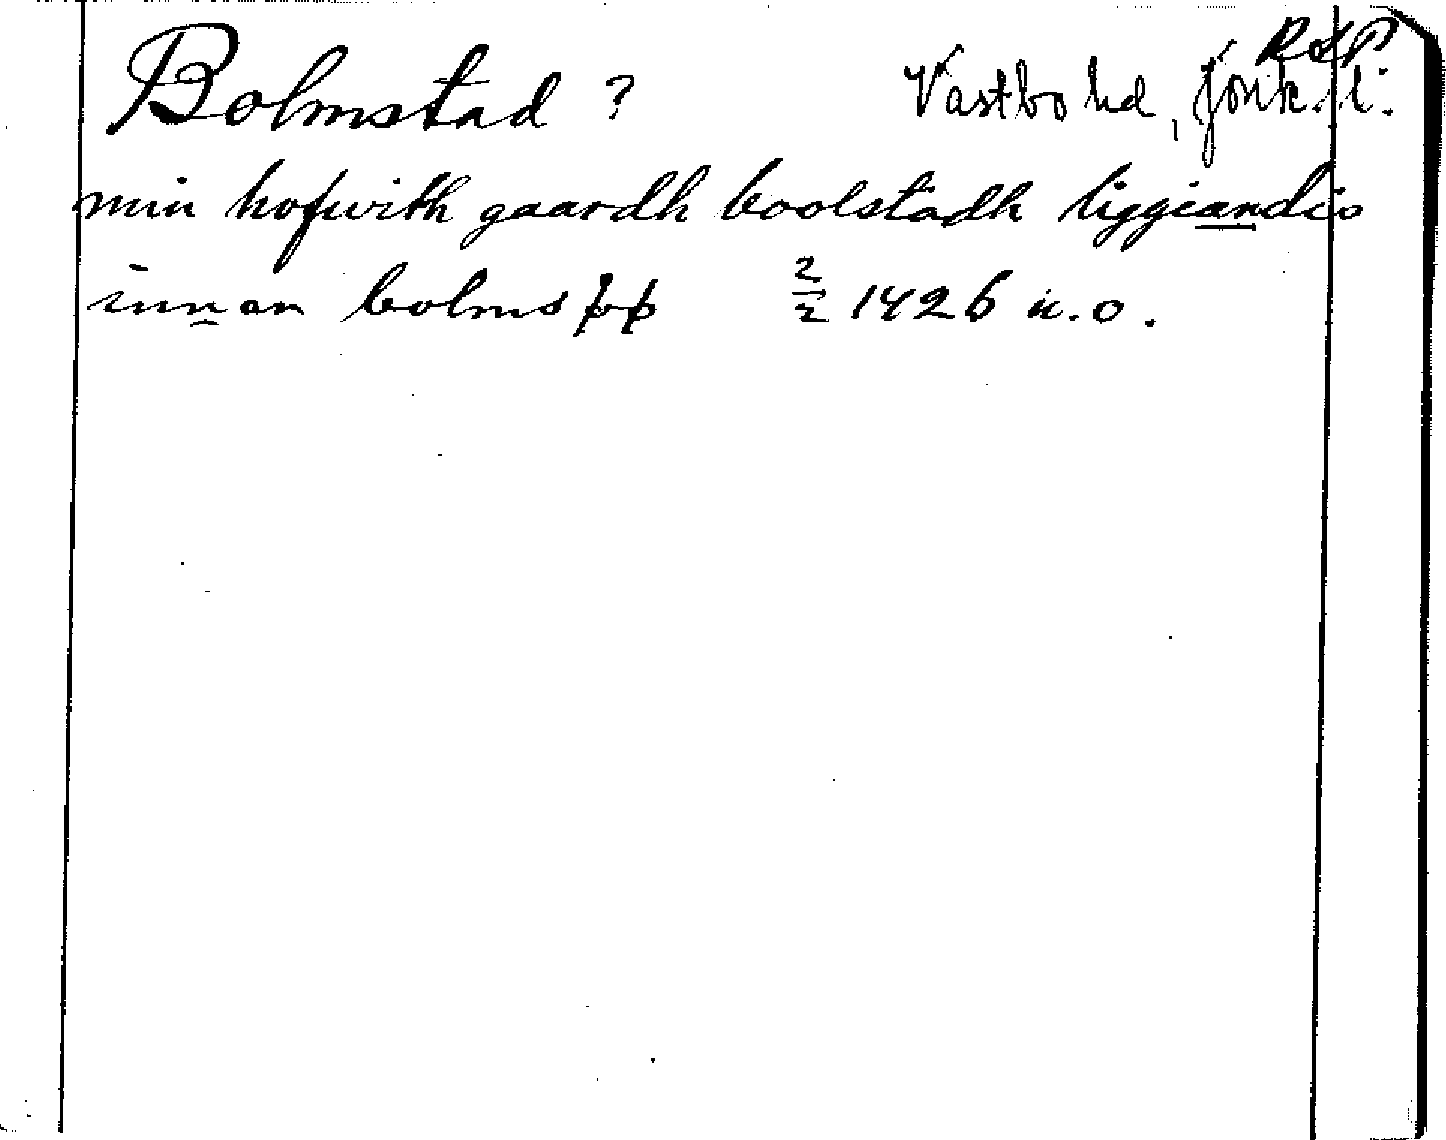 RAP
Bolmstad ? Västbo hd, Jönk. l:
min hofwith gaardh boolstadh liggiandis
innan bolms pp 2/2 1426 u.o.